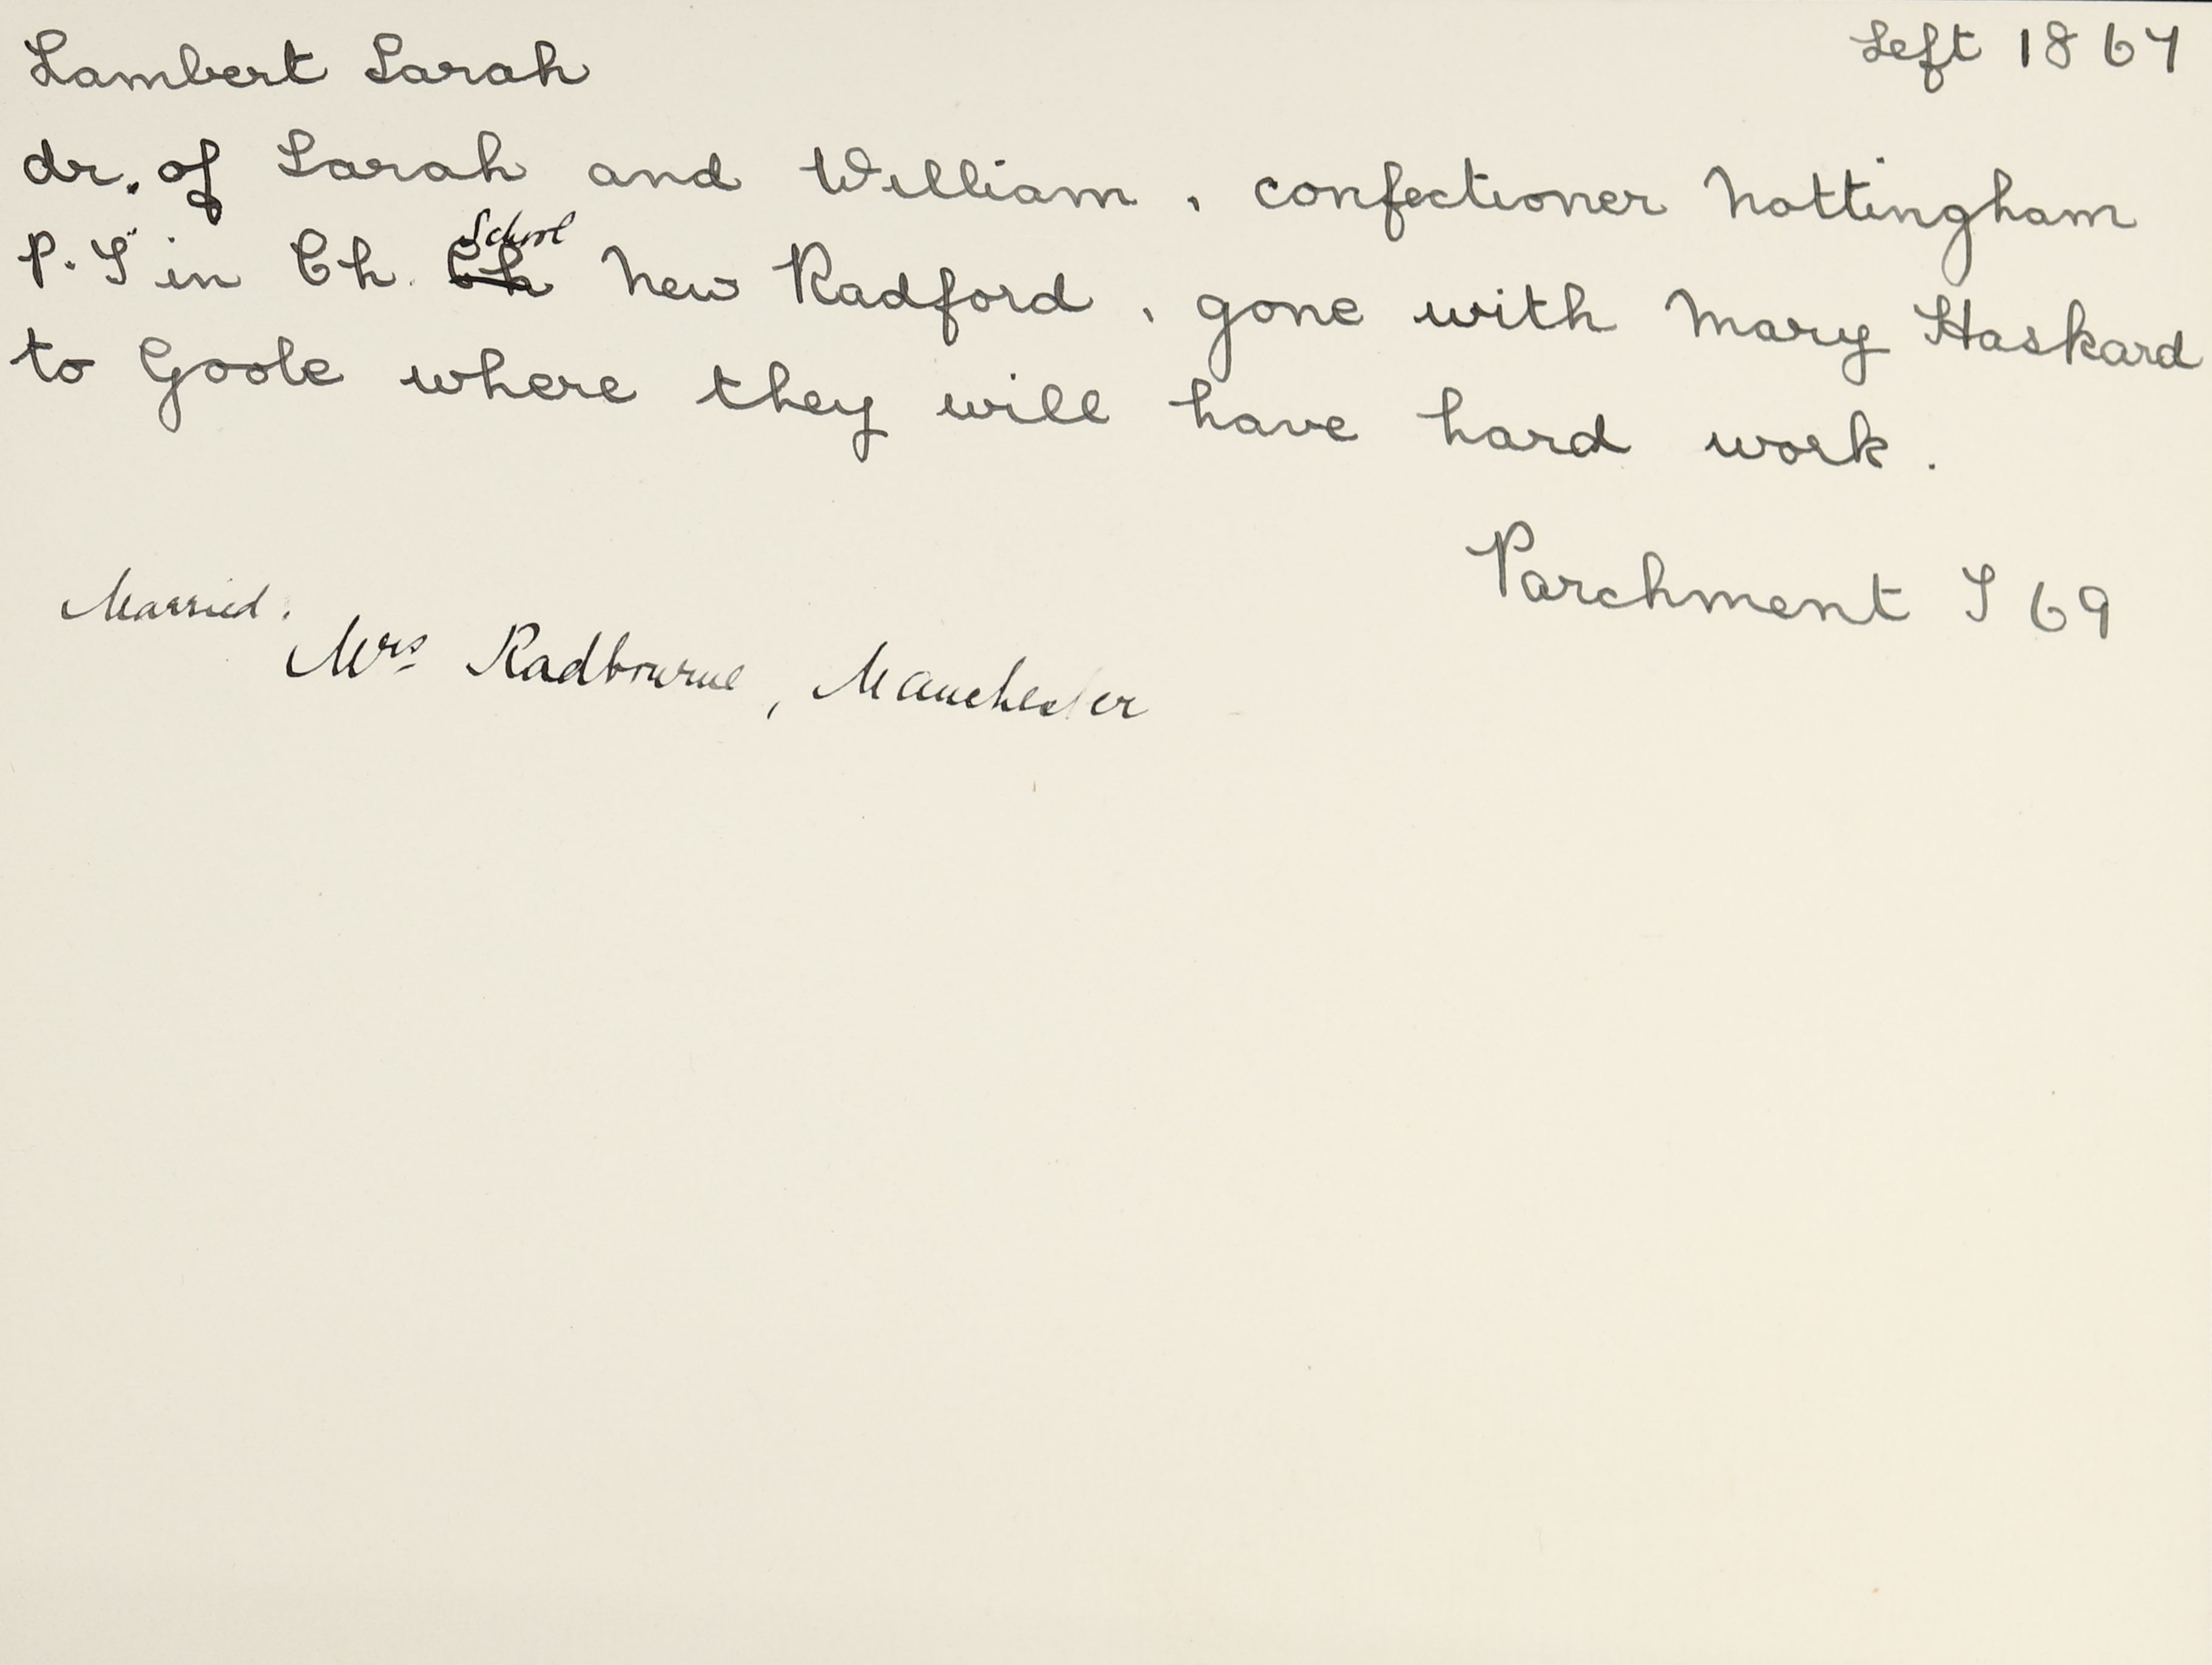 Lambert Sarah Left 1867
dr. of Sarah and William, confectioner Nottingham
School
P. T in Ch. Ch New Radford, gone with Mary Haskard
to Goole where they will have hard work.
Parchment T 69
Married.
Mrs Radbourne, Manchester